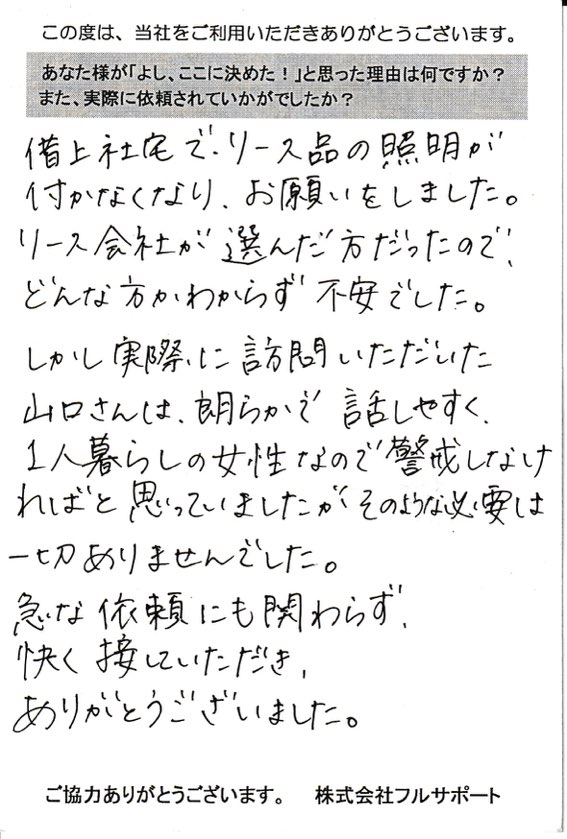 この度は、当社をご利用いただきありがとうございます。
あなた様が「よし、ここに決めた！」と思った理由は何ですか？
また、実際に依頼されていかがでしたか？
借上社宅で、リース品の照明が
付かなくなり、お願いをしました。
リース会社が選んだ方だったので、
どんな方かわからず不安でした。
しかし実際に訪問いただいた
山口さんは、朗らかで話しやすく、
1人暮らしの女性なので警戒しなけ
ればと思っていましたがそのような必要は
一切ありませんでした。
急な依頼にも関わらず、
快く接していただき、
ありがとうございました。
ご協力ありがとうございます。　株式会社フルサポート